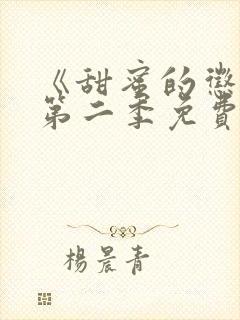 《甜蜜的懲
第二季免費
楊晨青